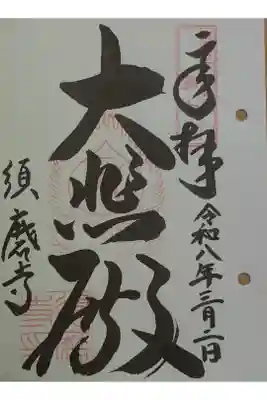 奉拝
令和八年三月二日
大悲殿
須磨寺